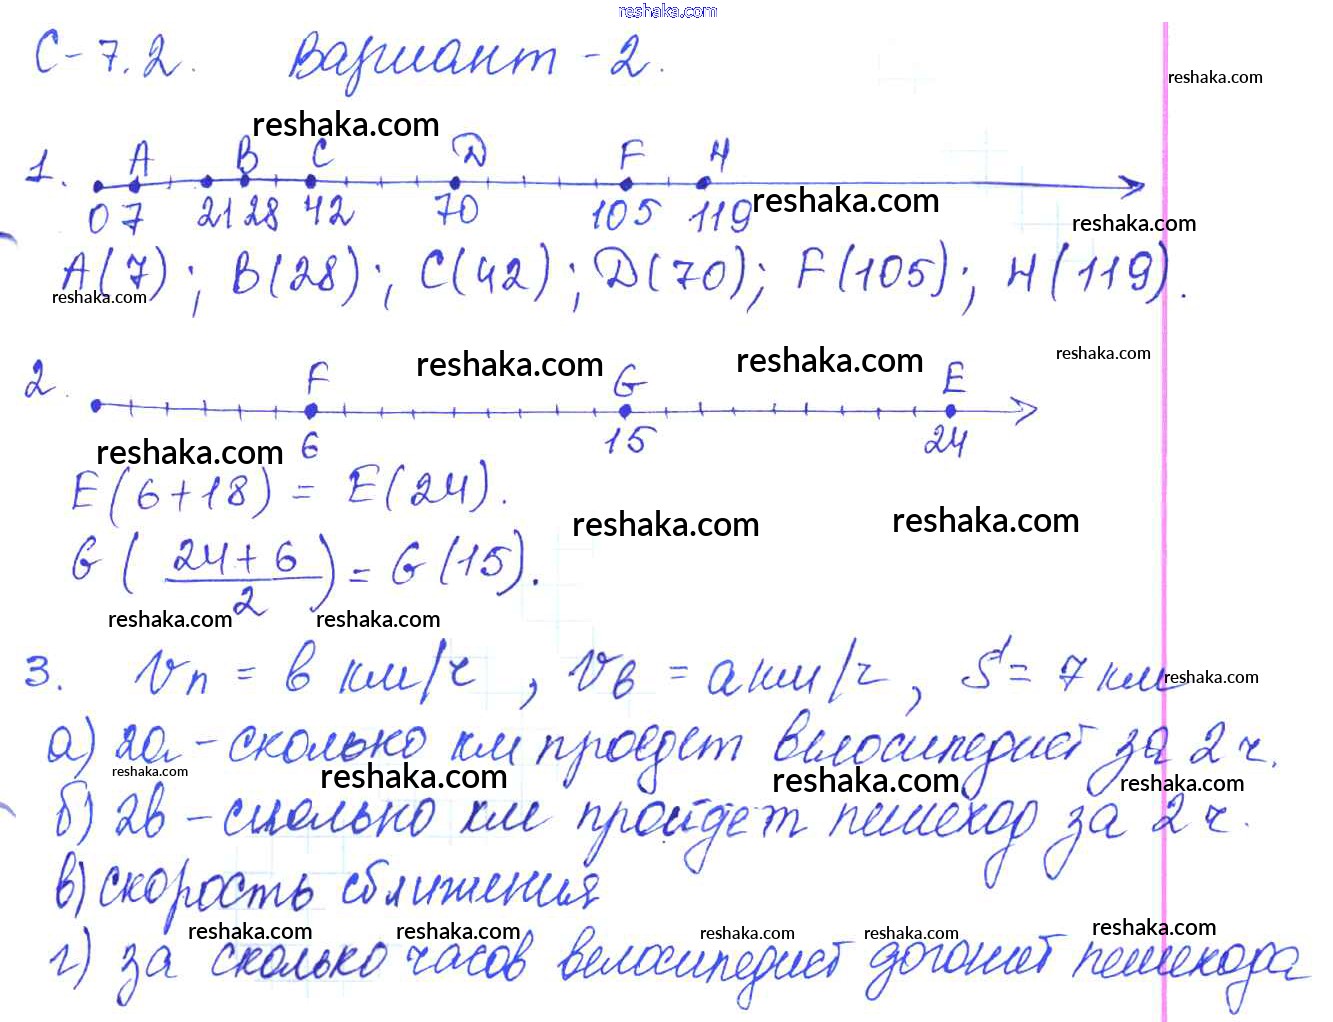 reshaka.com
С-7.2. Вариант-2.
reshaka.com
reshaka.com
1. A B C D F H
0 7 21 28 42 70 105 119
reshaka.com
reshaka.com
A(7); B(28); C(42); D(70); F(105); H(119).
reshaka.com
reshaka.com
reshaka.com
reshaka.com
2. F G E
6 15 24
reshaka.com
E(6+18) = E(24).
reshaka.com
reshaka.com
G(24+6/2) = G(15).
reshaka.com
reshaka.com
3. Vп = в км/ч, Vв = а км/ч, S = 7 км
reshaka.com
а) 2а - сколько км проедет велосипедист за 2 ч.
reshaka.com
reshaka.com
reshaka.com
reshaka.com
б) 2в - сколько км пройдет пешеход за 2 ч.
в) скорость сближения
reshaka.com
reshaka.com
reshaka.com
reshaka.com
reshaka.com
г) за сколько часов велосипедист догонит пешехода